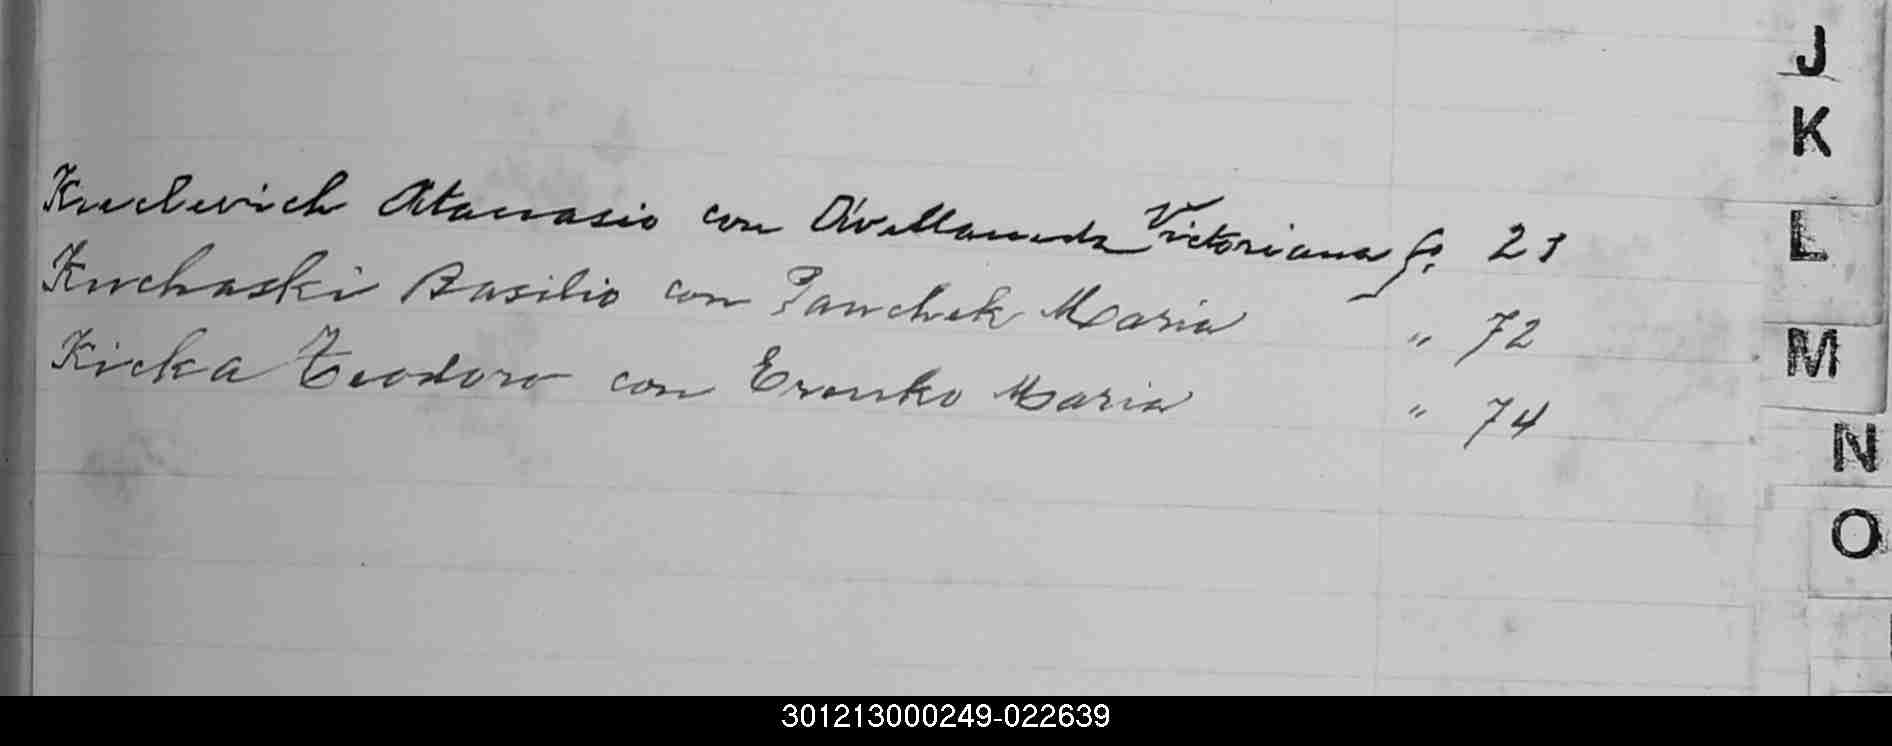 Kreclevich Atanasio con Avellaneda Victoriana fo. 21
Kuchaski Basilio con Panchek Maria " 72
Kicka Teodoro con Erenko Maria " 74
J
K
L
M
N
O
301213000249-022639